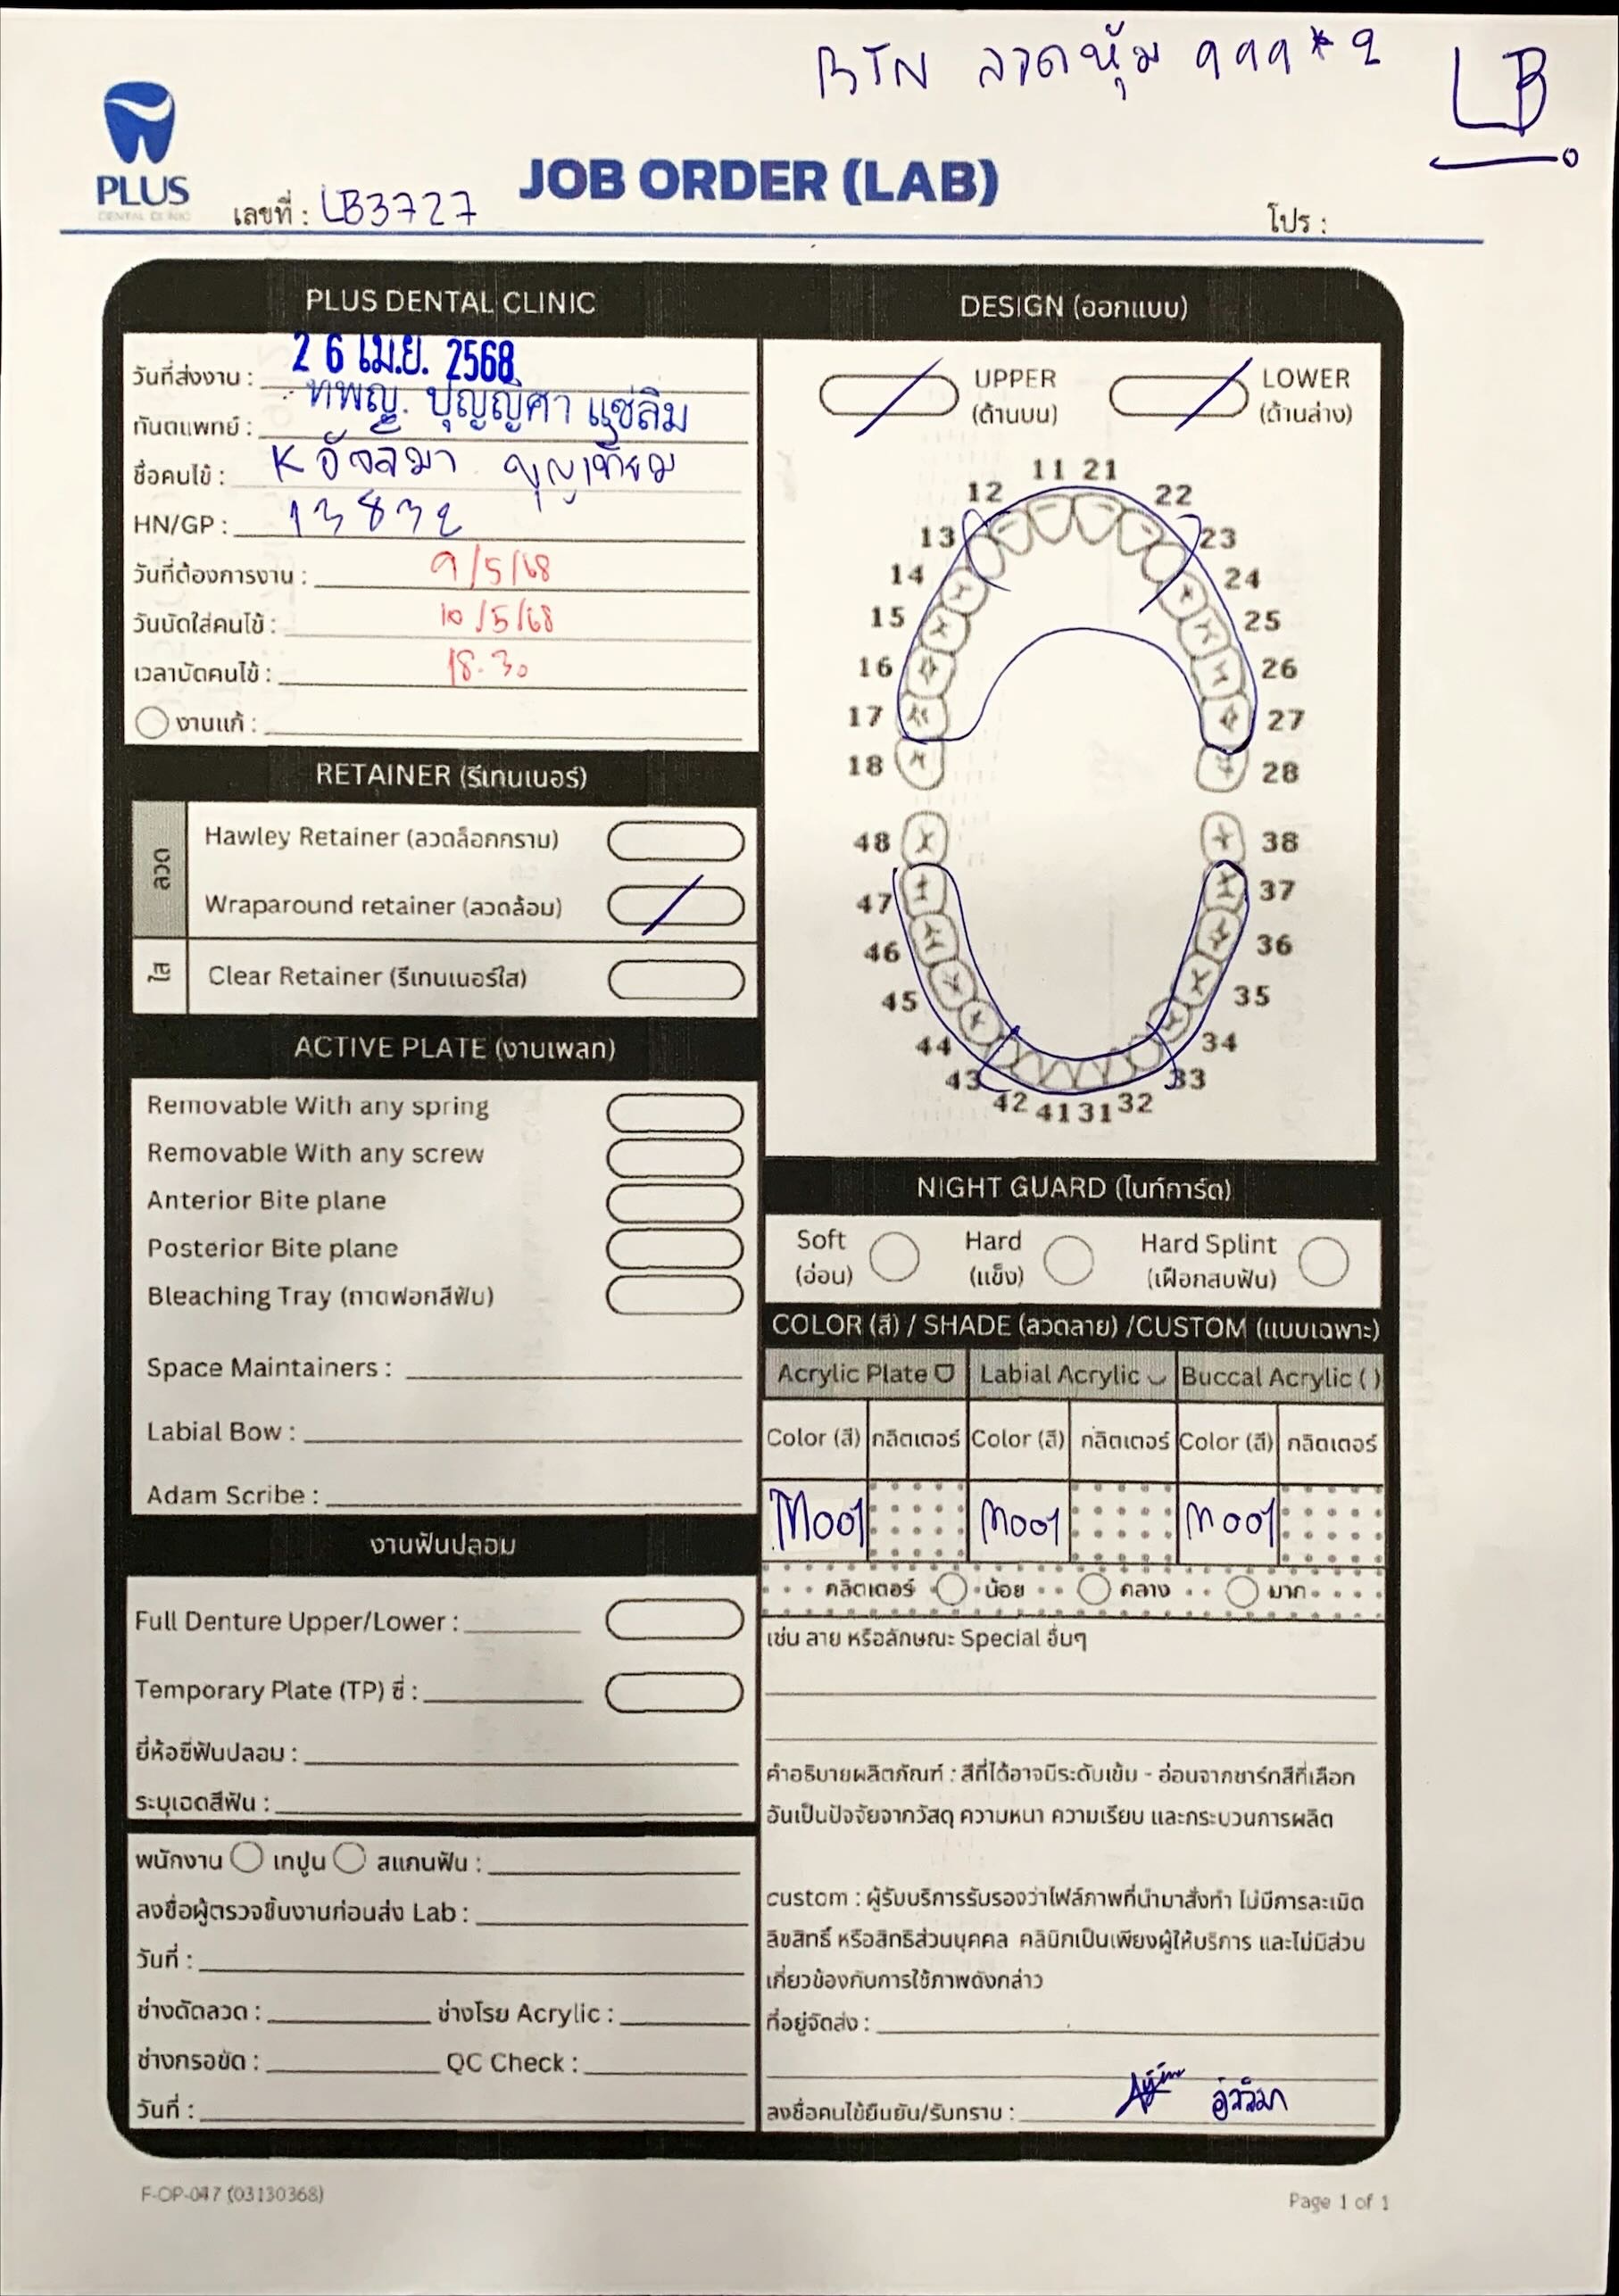 BTN ลวดหุ้ม 999*2
LB
PLUS
DENTAL CLINIC
JOB ORDER (LAB)
เลขที่ : LB3727
โปร :
PLUS DENTAL CLINIC
วันที่ส่งงาน : 26 เม.ย. 2568
ทันตแพทย์ : ทพญ. ปุญญิศา แซ่ลิม
ชื่อคนไข้ : K
HN/GP : 13832
วันที่ต้องการงาน : 9/5/68
วันนัดใส่คนไข้ : 10/5/68
เวลานัดคนไข้ : 18.30
งานแก้ :
RETAINER (รีเทนเนอร์)
ลวด
Hawley Retainer (ลวดล็อกกราม)
Wraparound retainer (ลวดล้อม)
ใส
Clear Retainer (รีเทนเนอร์ใส)
ACTIVE PLATE (งานเพลท)
Removable With any spring
Removable With any screw
Anterior Bite plane
Posterior Bite plane
Bleaching Tray (ถาดฟอกสีฟัน)
Space Maintainers :
Labial Bow :
Adam Scribe :
งานฟันปลอม
Full Denture Upper/Lower :
Temporary Plate (TP) ซี่ :
ยี่ห้อซี่ฟันปลอม :
ระบุเฉดสีฟัน :
พนักงาน เทปูน สแกนฟัน :
ลงชื่อผู้ตรวจชิ้นงานก่อนส่ง Lab :
วันที่ :
ช่างดัดลวด : ช่างโรย Acrylic :
ช่างกรอขัด : QC Check :
วันที่ :
DESIGN (ออกแบบ)
UPPER (ด้านบน)
LOWER (ด้านล่าง)
11 21
12 22
13 23
14 24
15 25
16 26
17 27
18 28
48 38
47 37
46 36
45 35
44 34
43 33
42 41 31 32
NIGHT GUARD (ไนท์การ์ด)
Soft (อ่อน)
Hard (แข็ง)
Hard Splint (เฝือกสบฟัน)
COLOR (สี) / SHADE (ลวดลาย) /CUSTOM (แบบเฉพาะ)
Acrylic Plate Labial Acrylic Buccal Acrylic ( )
Color (สี) กลิตเตอร์ Color (สี) กลิตเตอร์ Color (สี) กลิตเตอร์
M001 M001 M001
กลิตเตอร์ น้อย กลาง มาก
เช่น ลาย หรือลักษณะ Special อื่นๆ
คำอธิบายผลิตภัณฑ์ : สีที่ได้อาจมีระดับเข้ม - อ่อนจากชาร์ทสีที่เลือก
อันเป็นปัจจัยจากวัสดุ ความหนา ความเรียบ และกระบวนการผลิต
custom : ผู้รับบริการรับรองว่าไฟล์ภาพที่นำมาสั่งทำ ไม่มีการละเมิด
ลิขสิทธิ์ หรือสิทธิส่วนบุคคล คลินิกเป็นเพียงผู้ให้บริการ และไม่มีส่วน
เกี่ยวข้องกับการใช้ภาพดังกล่าว
ที่อยู่จัดส่ง :
ลงชื่อคนไข้ยืนยัน/รับทราบ :
F-OP-047 (03130368)
Page 1 of 1